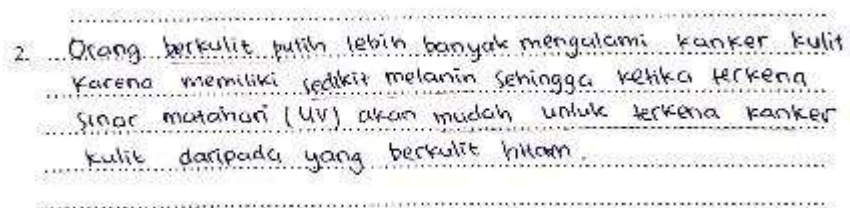 2. Orang berkulit putih lebih banyak mengalami kanker kulit
karena memiliki sedikit melanin sehingga ketika terkena
sinar matahari (UV) akan mudah untuk terkena kanker
kulit daripada yang berkulit hitam.